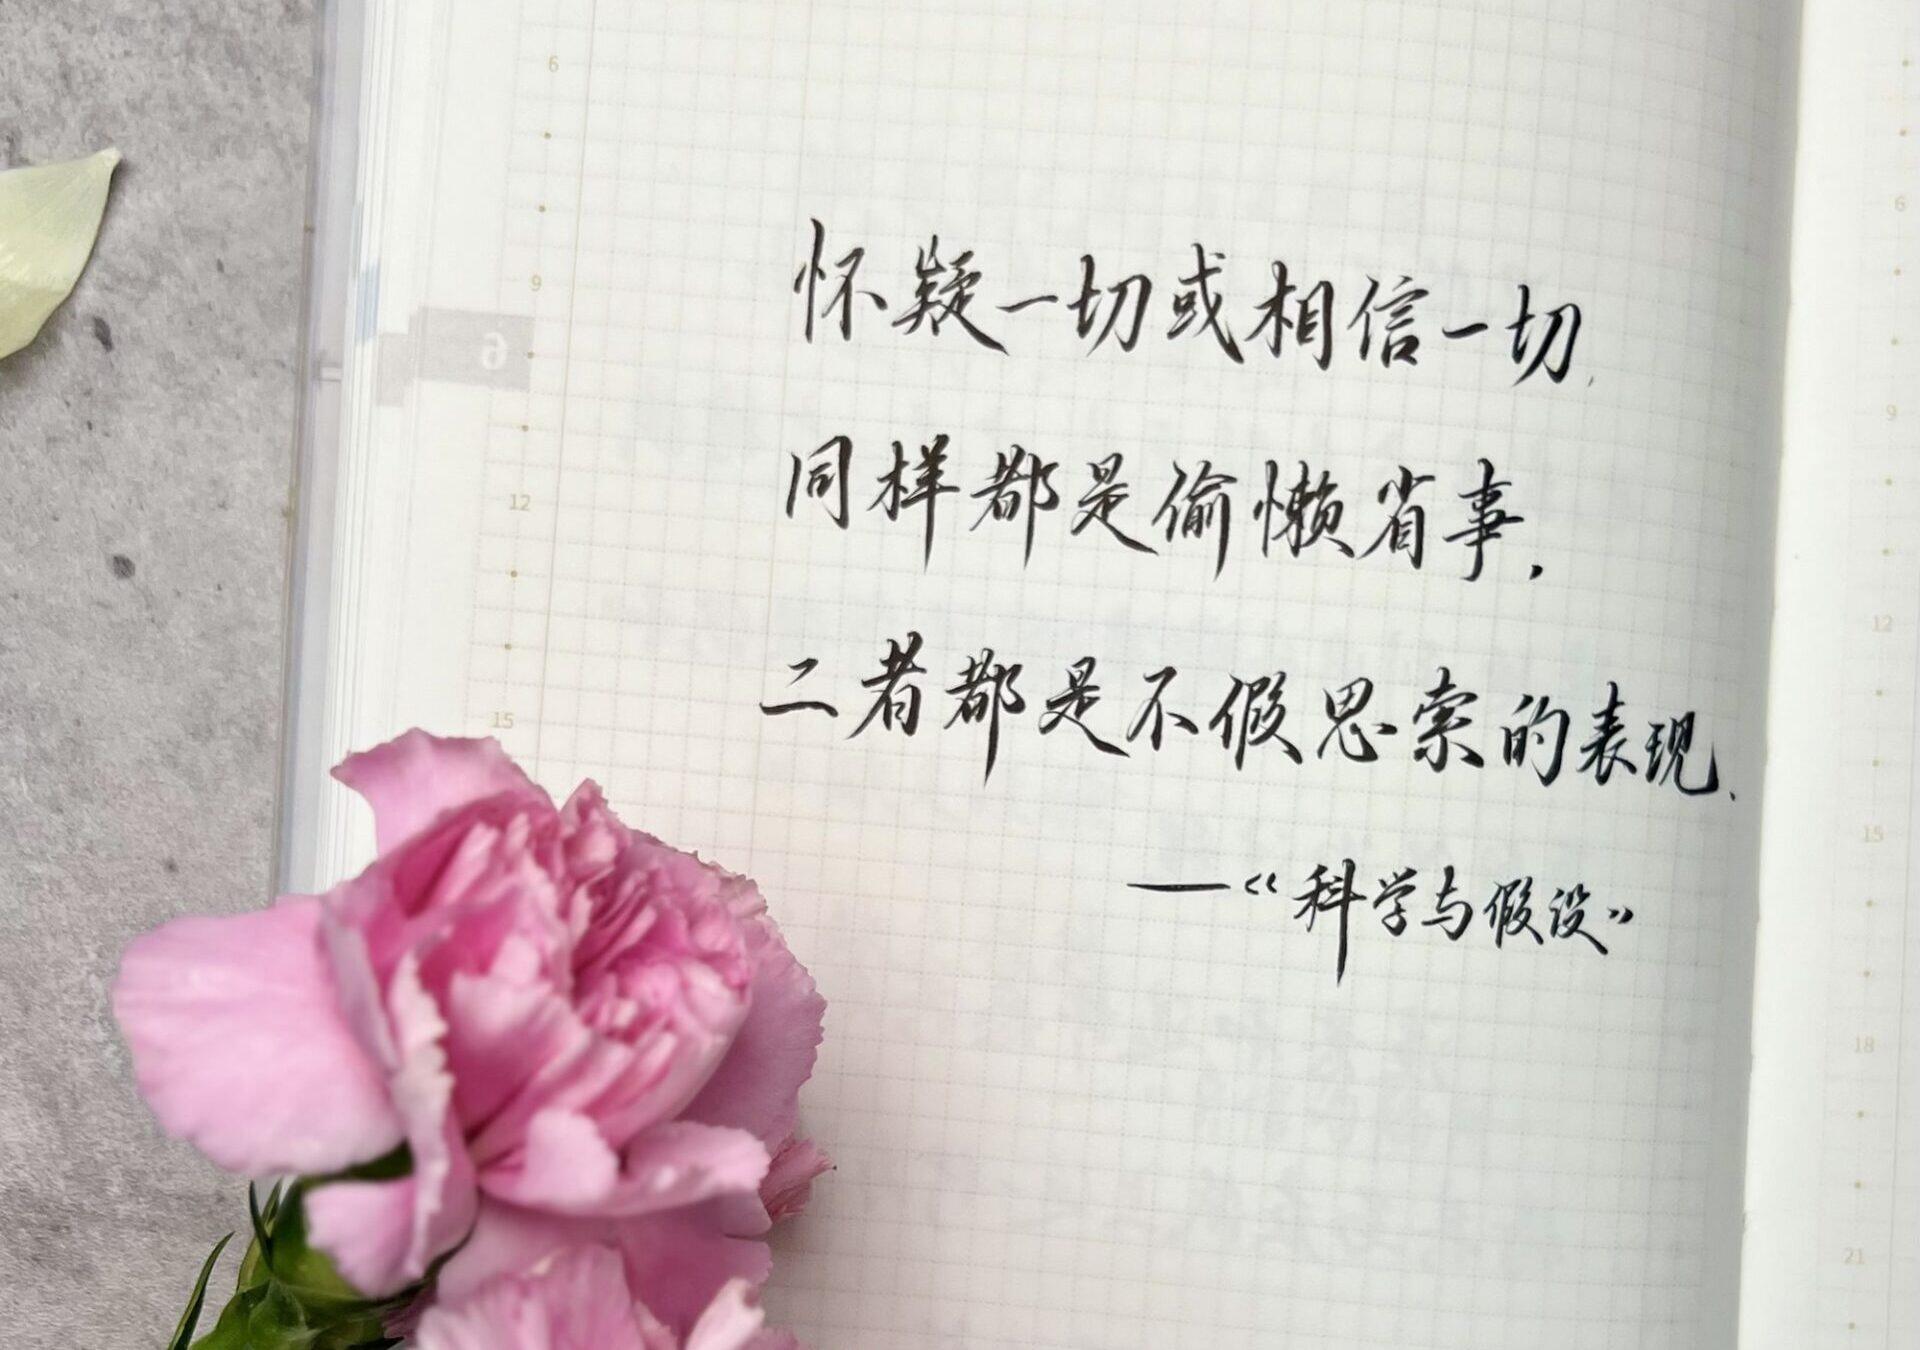 怀疑一切或相信一切,
同样都是偷懒省事,
二者都是不假思索的表现.
——《科学与假设》
6
9
12
15
6
6
9
12
15
18
21